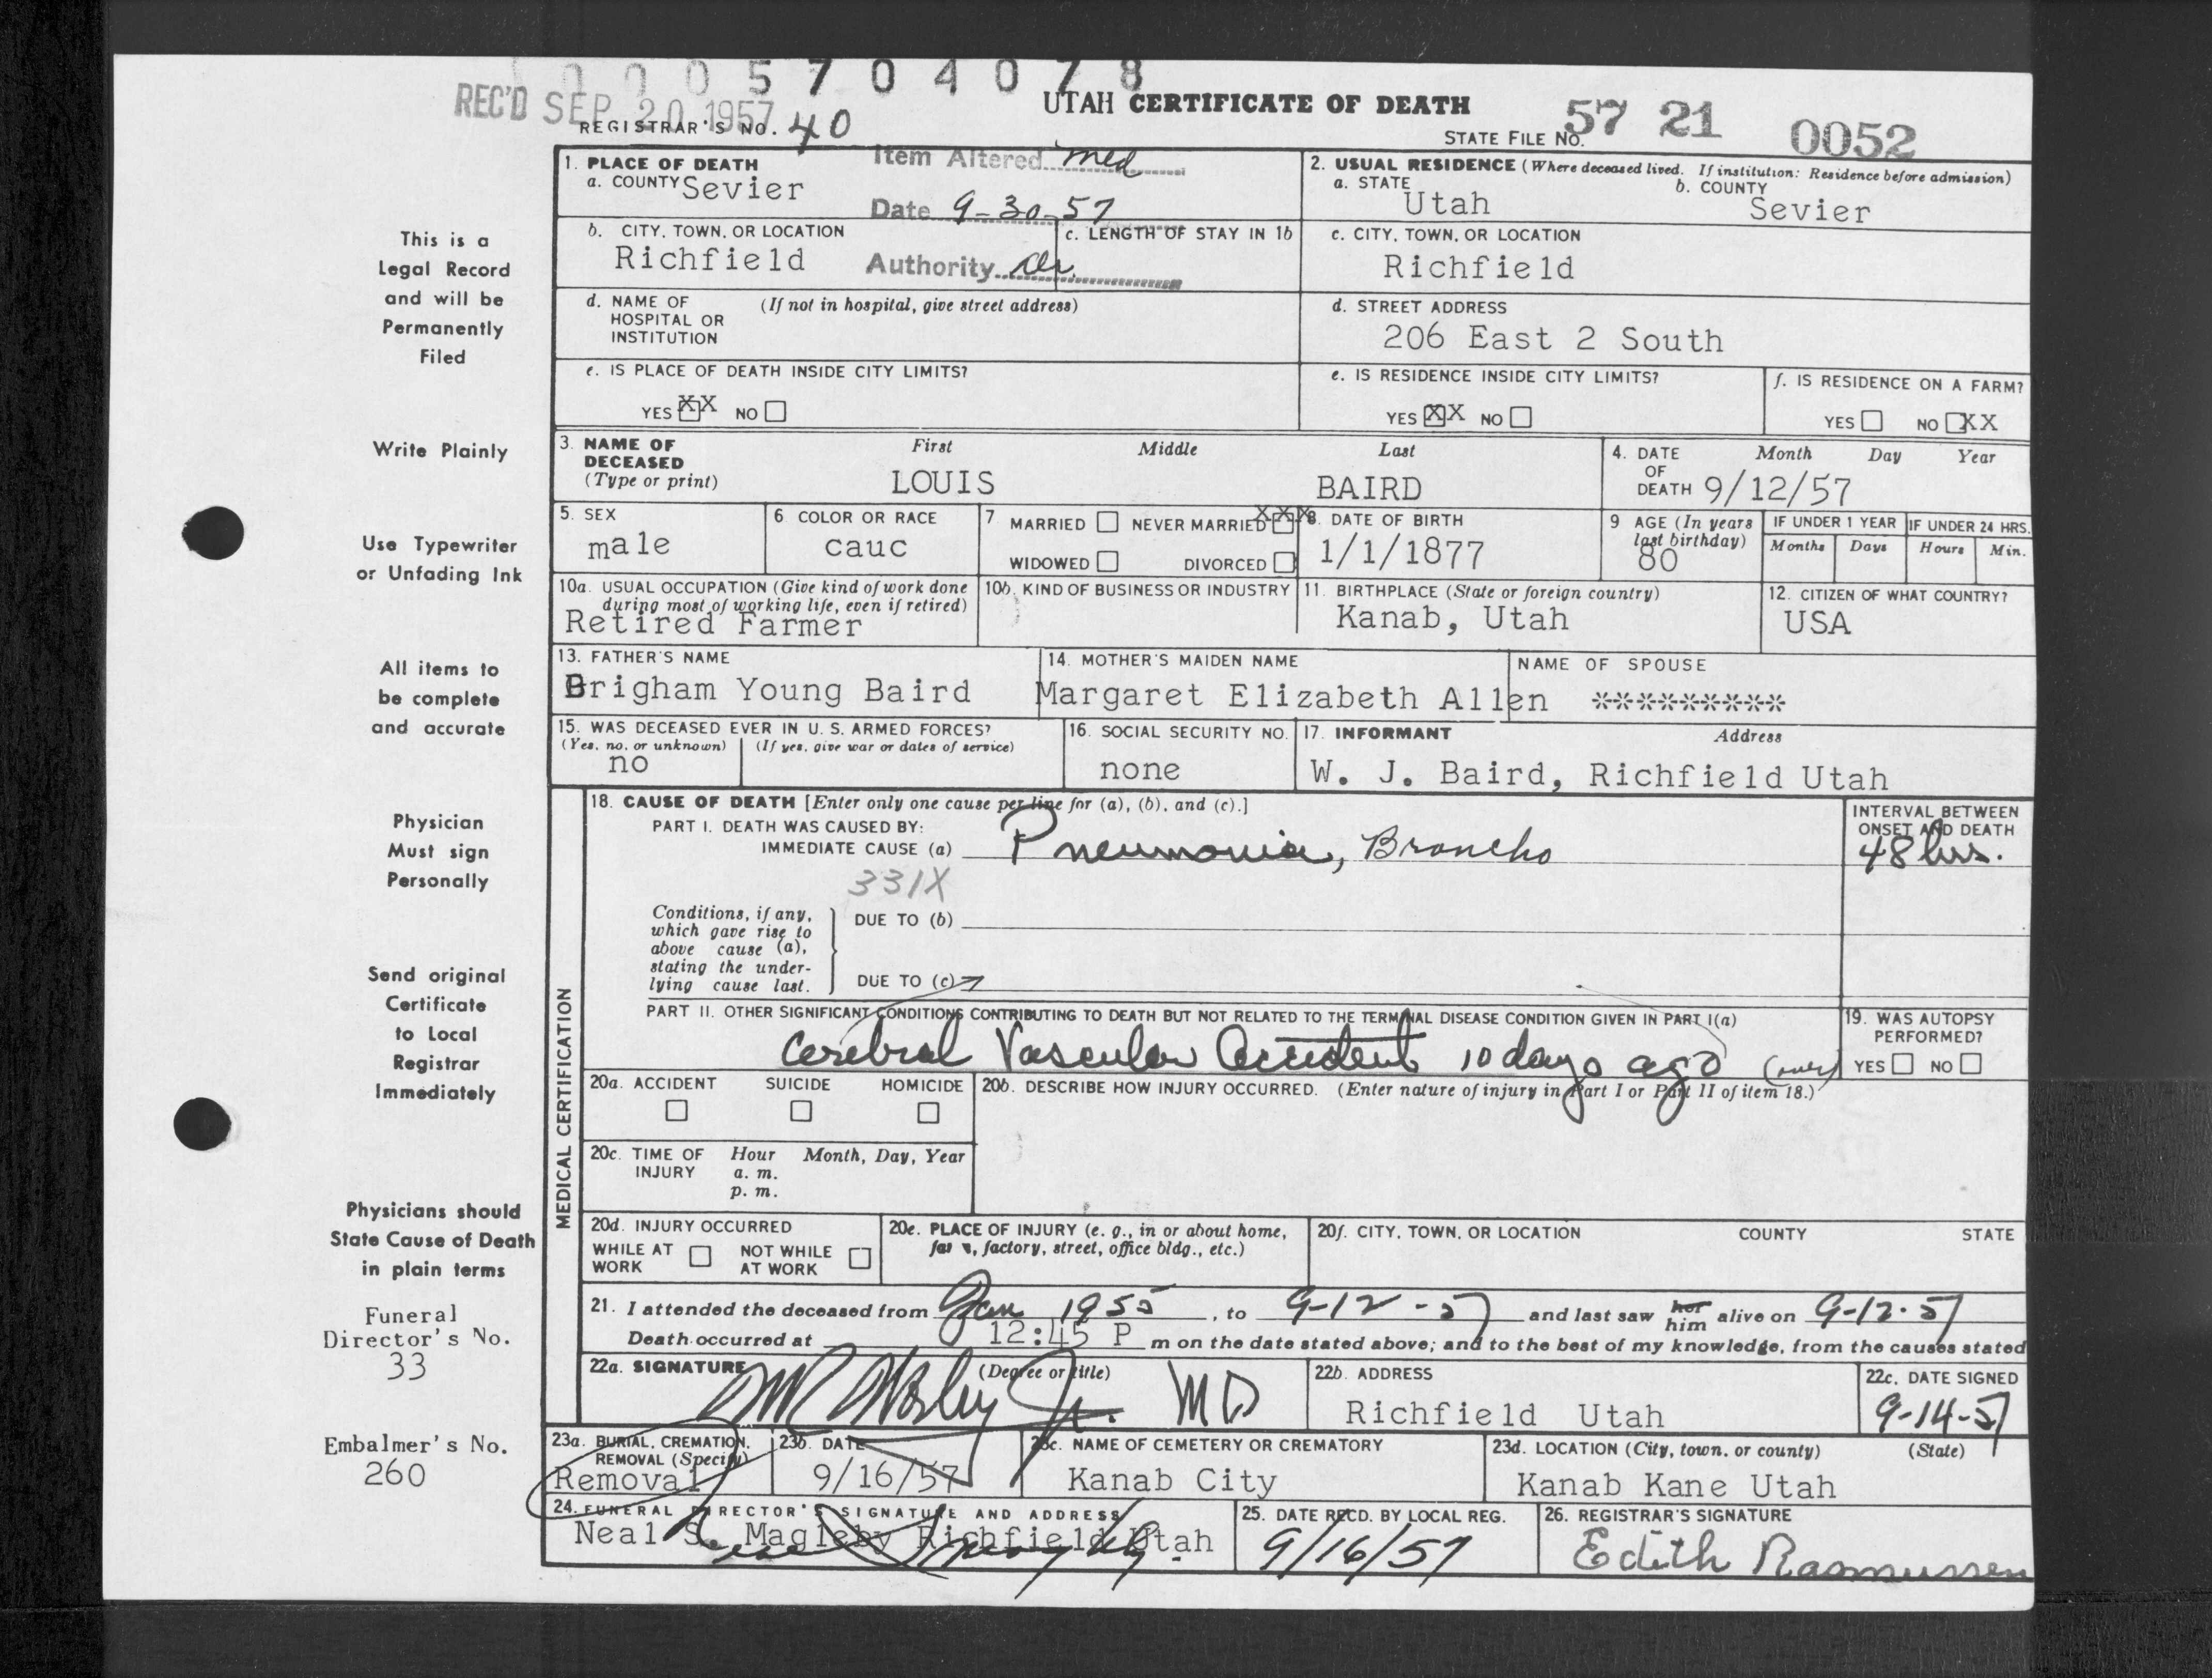 0 0 0 5 7 0 4 0 7 8
REC'D SEP 20 1957
UTAH CERTIFICATE OF DEATH
REGISTRAR'S NO. 40
STATE FILE NO. 57 21 0052
Item Altered med
Date 9-30-57
Authority
1. PLACE OF DEATH
a. COUNTY Sevier
2. USUAL RESIDENCE (Where deceased lived. If institution: Residence before admission)
a. STATE Utah b. COUNTY Sevier
b. CITY, TOWN, OR LOCATION Richfield
c. LENGTH OF STAY IN 1b
c. CITY, TOWN, OR LOCATION Richfield
d. NAME OF HOSPITAL OR INSTITUTION (If not in hospital, give street address)
d. STREET ADDRESS 206 East 2 South
e. IS PLACE OF DEATH INSIDE CITY LIMITS?
YES XX NO
e. IS RESIDENCE INSIDE CITY LIMITS?
YES XX NO
f. IS RESIDENCE ON A FARM?
YES NO XX
3. NAME OF DECEASED (Type or print)
First Middle Last
LOUIS BAIRD
4. DATE OF DEATH Month Day Year
9/12/57
5. SEX male
6 COLOR OR RACE cauc
7 MARRIED NEVER MARRIED XXX
WIDOWED DIVORCED
8. DATE OF BIRTH 1/1/1877
9 AGE (In years last birthday) 80
IF UNDER 1 YEAR Months Days
IF UNDER 24 HRS. Hours Min.
10a. USUAL OCCUPATION (Give kind of work done during most of working life, even if retired)
Retired Farmer
10b. KIND OF BUSINESS OR INDUSTRY
11. BIRTHPLACE (State or foreign country)
Kanab, Utah
12. CITIZEN OF WHAT COUNTRY?
USA
13. FATHER'S NAME
Brigham Young Baird
14. MOTHER'S MAIDEN NAME
Margaret Elizabeth Allen
NAME OF SPOUSE
*********
15. WAS DECEASED EVER IN U. S. ARMED FORCES?
(Yes, no, or unknown) (If yes, give war or dates of service)
no
16. SOCIAL SECURITY NO.
none
17. INFORMANT Address
W. J. Baird, Richfield Utah
MEDICAL CERTIFICATION
18. CAUSE OF DEATH [Enter only one cause per line for (a), (b), and (c).]
PART I. DEATH WAS CAUSED BY:
IMMEDIATE CAUSE (a) Pneumonia, Broncho
INTERVAL BETWEEN ONSET AND DEATH
48 hrs.
331X
Conditions, if any, which gave rise to above cause (a), stating the underlying cause last.
DUE TO (b)
DUE TO (c)
PART II. OTHER SIGNIFICANT CONDITIONS CONTRIBUTING TO DEATH BUT NOT RELATED TO THE TERMINAL DISEASE CONDITION GIVEN IN PART I(a)
Cerebral Vascular Accident 10 days ago (over)
19. WAS AUTOPSY PERFORMED?
YES NO
20a. ACCIDENT SUICIDE HOMICIDE
20b. DESCRIBE HOW INJURY OCCURRED. (Enter nature of injury in Part I or Part II of item 18.)
20c. TIME OF INJURY Hour Month, Day, Year
a. m.
p. m.
20d. INJURY OCCURRED
WHILE AT WORK NOT WHILE AT WORK
20e. PLACE OF INJURY (e. g., in or about home, farm, factory, street, office bldg., etc.)
20f. CITY, TOWN, OR LOCATION COUNTY STATE
21. I attended the deceased from Jan 1955, to 9-12-57 and last saw her him alive on 9-12-57
Death occurred at 12:45 P m on the date stated above; and to the best of my knowledge, from the causes stated
22a. SIGNATURE (Degree or title)
Jr. MD
22b. ADDRESS
Richfield Utah
22c. DATE SIGNED
9-14-57
23a. BURIAL, CREMATION, REMOVAL (Specify)
Removal
23b. DATE
9/16/57
23c. NAME OF CEMETERY OR CREMATORY
Kanab City
23d. LOCATION (City, town, or county) (State)
Kanab Kane Utah
24. FUNERAL DIRECTOR'S SIGNATURE AND ADDRESS
Neal S. Magleby Richfield Utah
25. DATE RECD. BY LOCAL REG.
9/16/57
26. REGISTRAR'S SIGNATURE
Edith Rasmussen
This is a
Legal Record
and will be
Permanently
Filed
Write Plainly
Use Typewriter
or Unfading Ink
All items to
be complete
and accurate
Physician
Must sign
Personally
Send original
Certificate
to Local
Registrar
Immediately
Physicians should
State Cause of Death
in plain terms
Funeral
Director's No.
33
Embalmer's No.
260